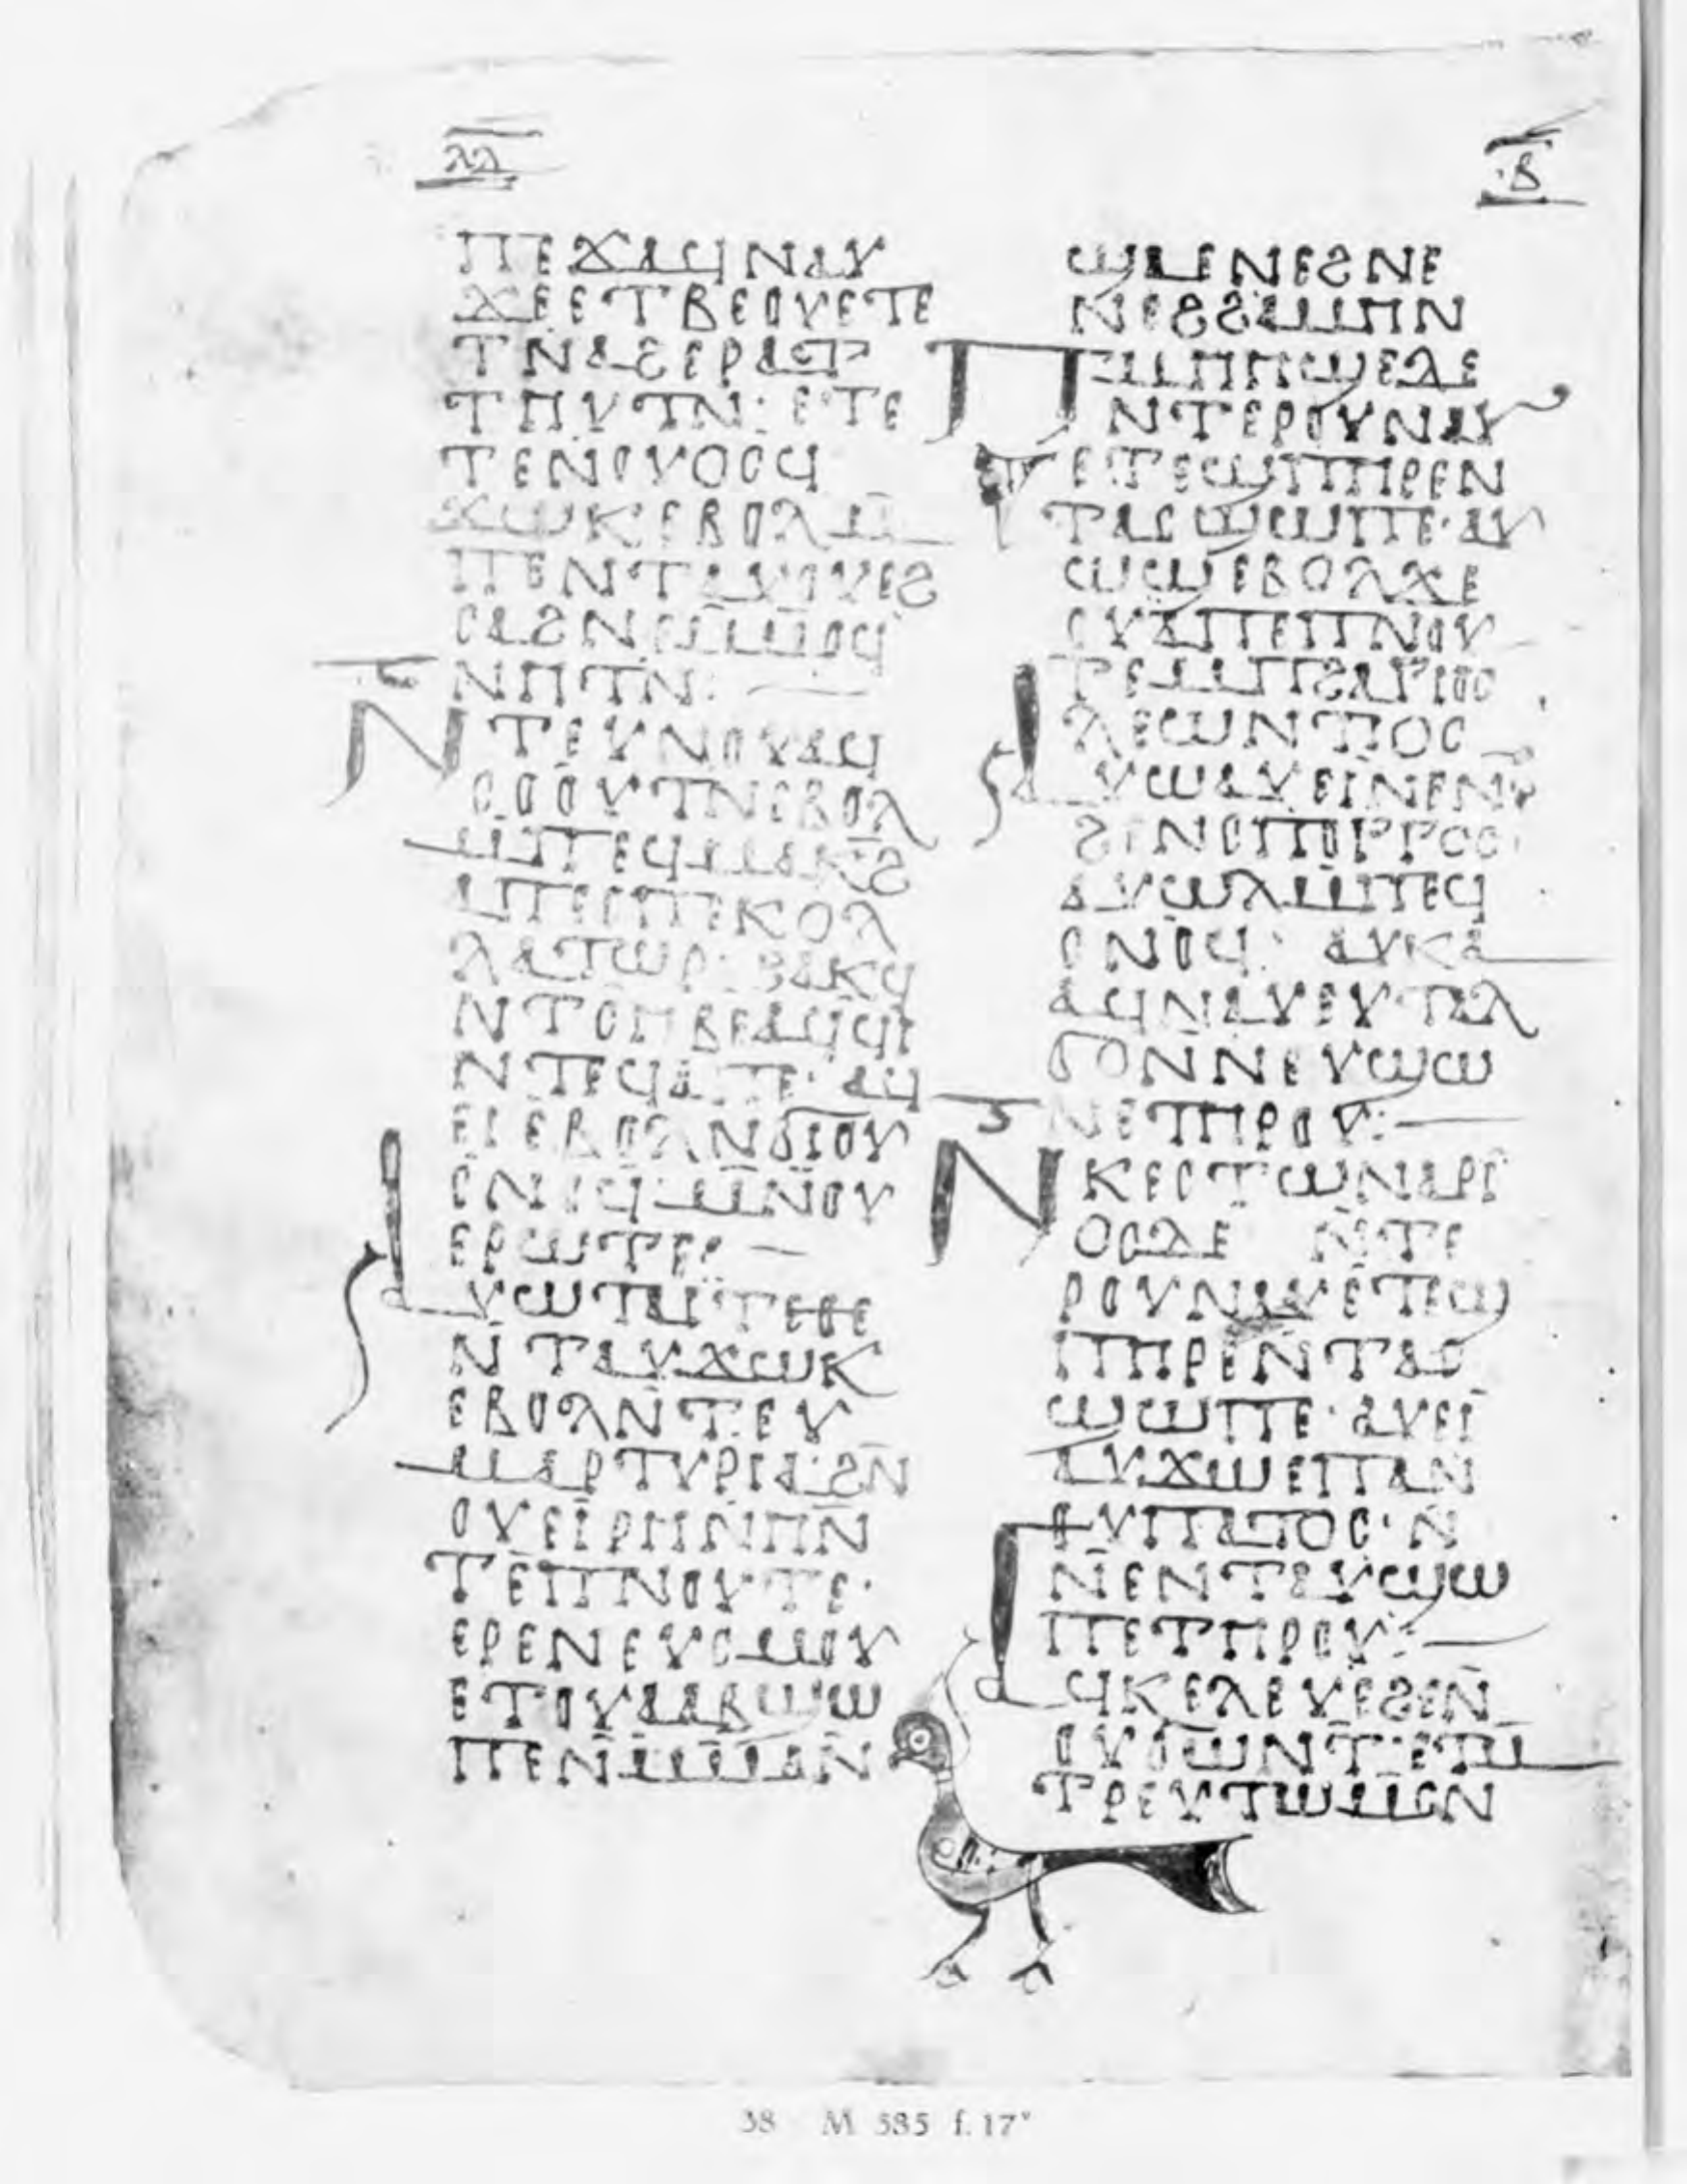 ⲗⲁ
ⲃ
ⲡⲉϫⲁϥⲛⲁⲩ
ϫⲉⲉⲧⲃⲉⲟⲩⲉⲧⲉ
ⲧⲛⲁϩⲉⲣⲁⲧ
ⲧⲏⲩⲧⲛ· ⲉⲧⲉ
ⲧⲉⲛⲟⲩⲟⲟϥ
ϫⲱⲕⲉⲃⲟⲗⲙ
ⲡⲉⲛⲧⲁⲩⲟⲩⲉϩ
ⲥⲁϩⲛⲉⲙⲙⲟϥ
ⲛⲏⲧⲛ:
ⲛⲧⲉⲩⲛⲟⲩⲁϥ
ⲥⲟⲟⲩⲧⲛⲉⲃⲟⲗ
ⲙⲡⲉϥⲙⲁⲕϩ
ⲙⲡⲉⲥⲡⲉⲕⲟⲗ
ⲗⲁⲧⲱⲣ· ϩⲁⲕϥ
ⲛⲧⲟⲏⲃⲉⲁϥϥⲓ
ⲛⲧⲉϥⲁⲡⲉ· ⲁϥ
ⲉⲓⲉⲃⲟⲗⲛϭⲓⲟⲩ
ⲥⲛⲟϥⲙⲛⲟⲩ
ⲉⲣⲱⲧⲉ:
ⲁⲩⲱⲧⲁⲓⲧⲉⲑⲉ
ⲛⲧⲁⲩϫⲱⲕ
ⲉⲃⲟⲗⲛⲧⲉⲩ
ⲙⲁⲣⲧⲩⲣⲓⲁ·ϩⲛ
ⲟⲩⲉⲓⲣⲏⲛⲏⲛ
ⲧⲉⲡⲛⲟⲩⲧⲉ·
ⲉⲣⲉⲛⲉⲩⲥⲙⲟⲩ
ⲉⲧⲟⲩⲁⲁⲃϣⲱ
ⲡⲉⲛⲙⲙⲁⲛ
ϣⲁⲉⲛⲉϩⲛⲉ
ⲛⲉϩϩⲁⲙⲏⲛ
ⲡⲙⲏⲏϣⲉⲇⲉ
ⲛⲧⲉⲣⲟⲩⲛⲁⲩ
ⲉⲧⲉϣⲡⲏⲣⲉⲛ
ⲧⲁⲥϣⲱⲡⲉ· ⲁⲩ
ⲱϣⲉⲃⲟⲗϫⲉ
ⲟⲩⲁⲡⲉⲡⲛⲟⲩ
ⲧⲉⲙⲡϩⲁⲅⲓⲟⲥ
ⲗⲉⲱⲛⲧⲓⲟⲥ
ⲁⲩⲱⲁⲩⲉⲓⲛⲉⲛ
ϩⲉⲛⲥⲡⲟⲅⲅⲟⲥ
ⲁⲩϣⲗⲙⲡⲉϥ
ⲥⲛⲟϥ· ⲁⲩⲕⲁ
ⲁϥⲛⲁⲩⲉⲩⲧⲁⲗ
ϭⲟⲛⲛⲉⲩϣⲱ
ⲛⲉⲧⲏⲣⲟⲩ:
ⲛⲕⲉⲥⲧⲱⲛⲁⲣⲓ
ⲟⲥⲇⲉ ⲛⲧⲉ
ⲣⲟⲩⲛⲁⲩⲉⲧⲉϣ
ⲡⲏⲣⲉⲛⲧⲁⲥ
ϣⲱⲡⲉ· ⲁⲩⲉⲓ
ⲁⲩϫⲱⲉⲡⲁⲛ
ⲑⲩⲡⲁⲧⲟⲥ·ⲛ
ⲛⲉⲛⲧⲁⲩϣⲱ
ⲡⲉⲧⲏⲣⲟⲩ:
ⲁϥⲕⲉⲗⲉⲩⲉϩⲉⲛ
ⲟⲩϭⲱⲛⲧ·ⲉⲧⲙ
ⲧⲣⲉⲩⲧⲱⲙⲥⲛ
38 M 585 f. 17ᵛ